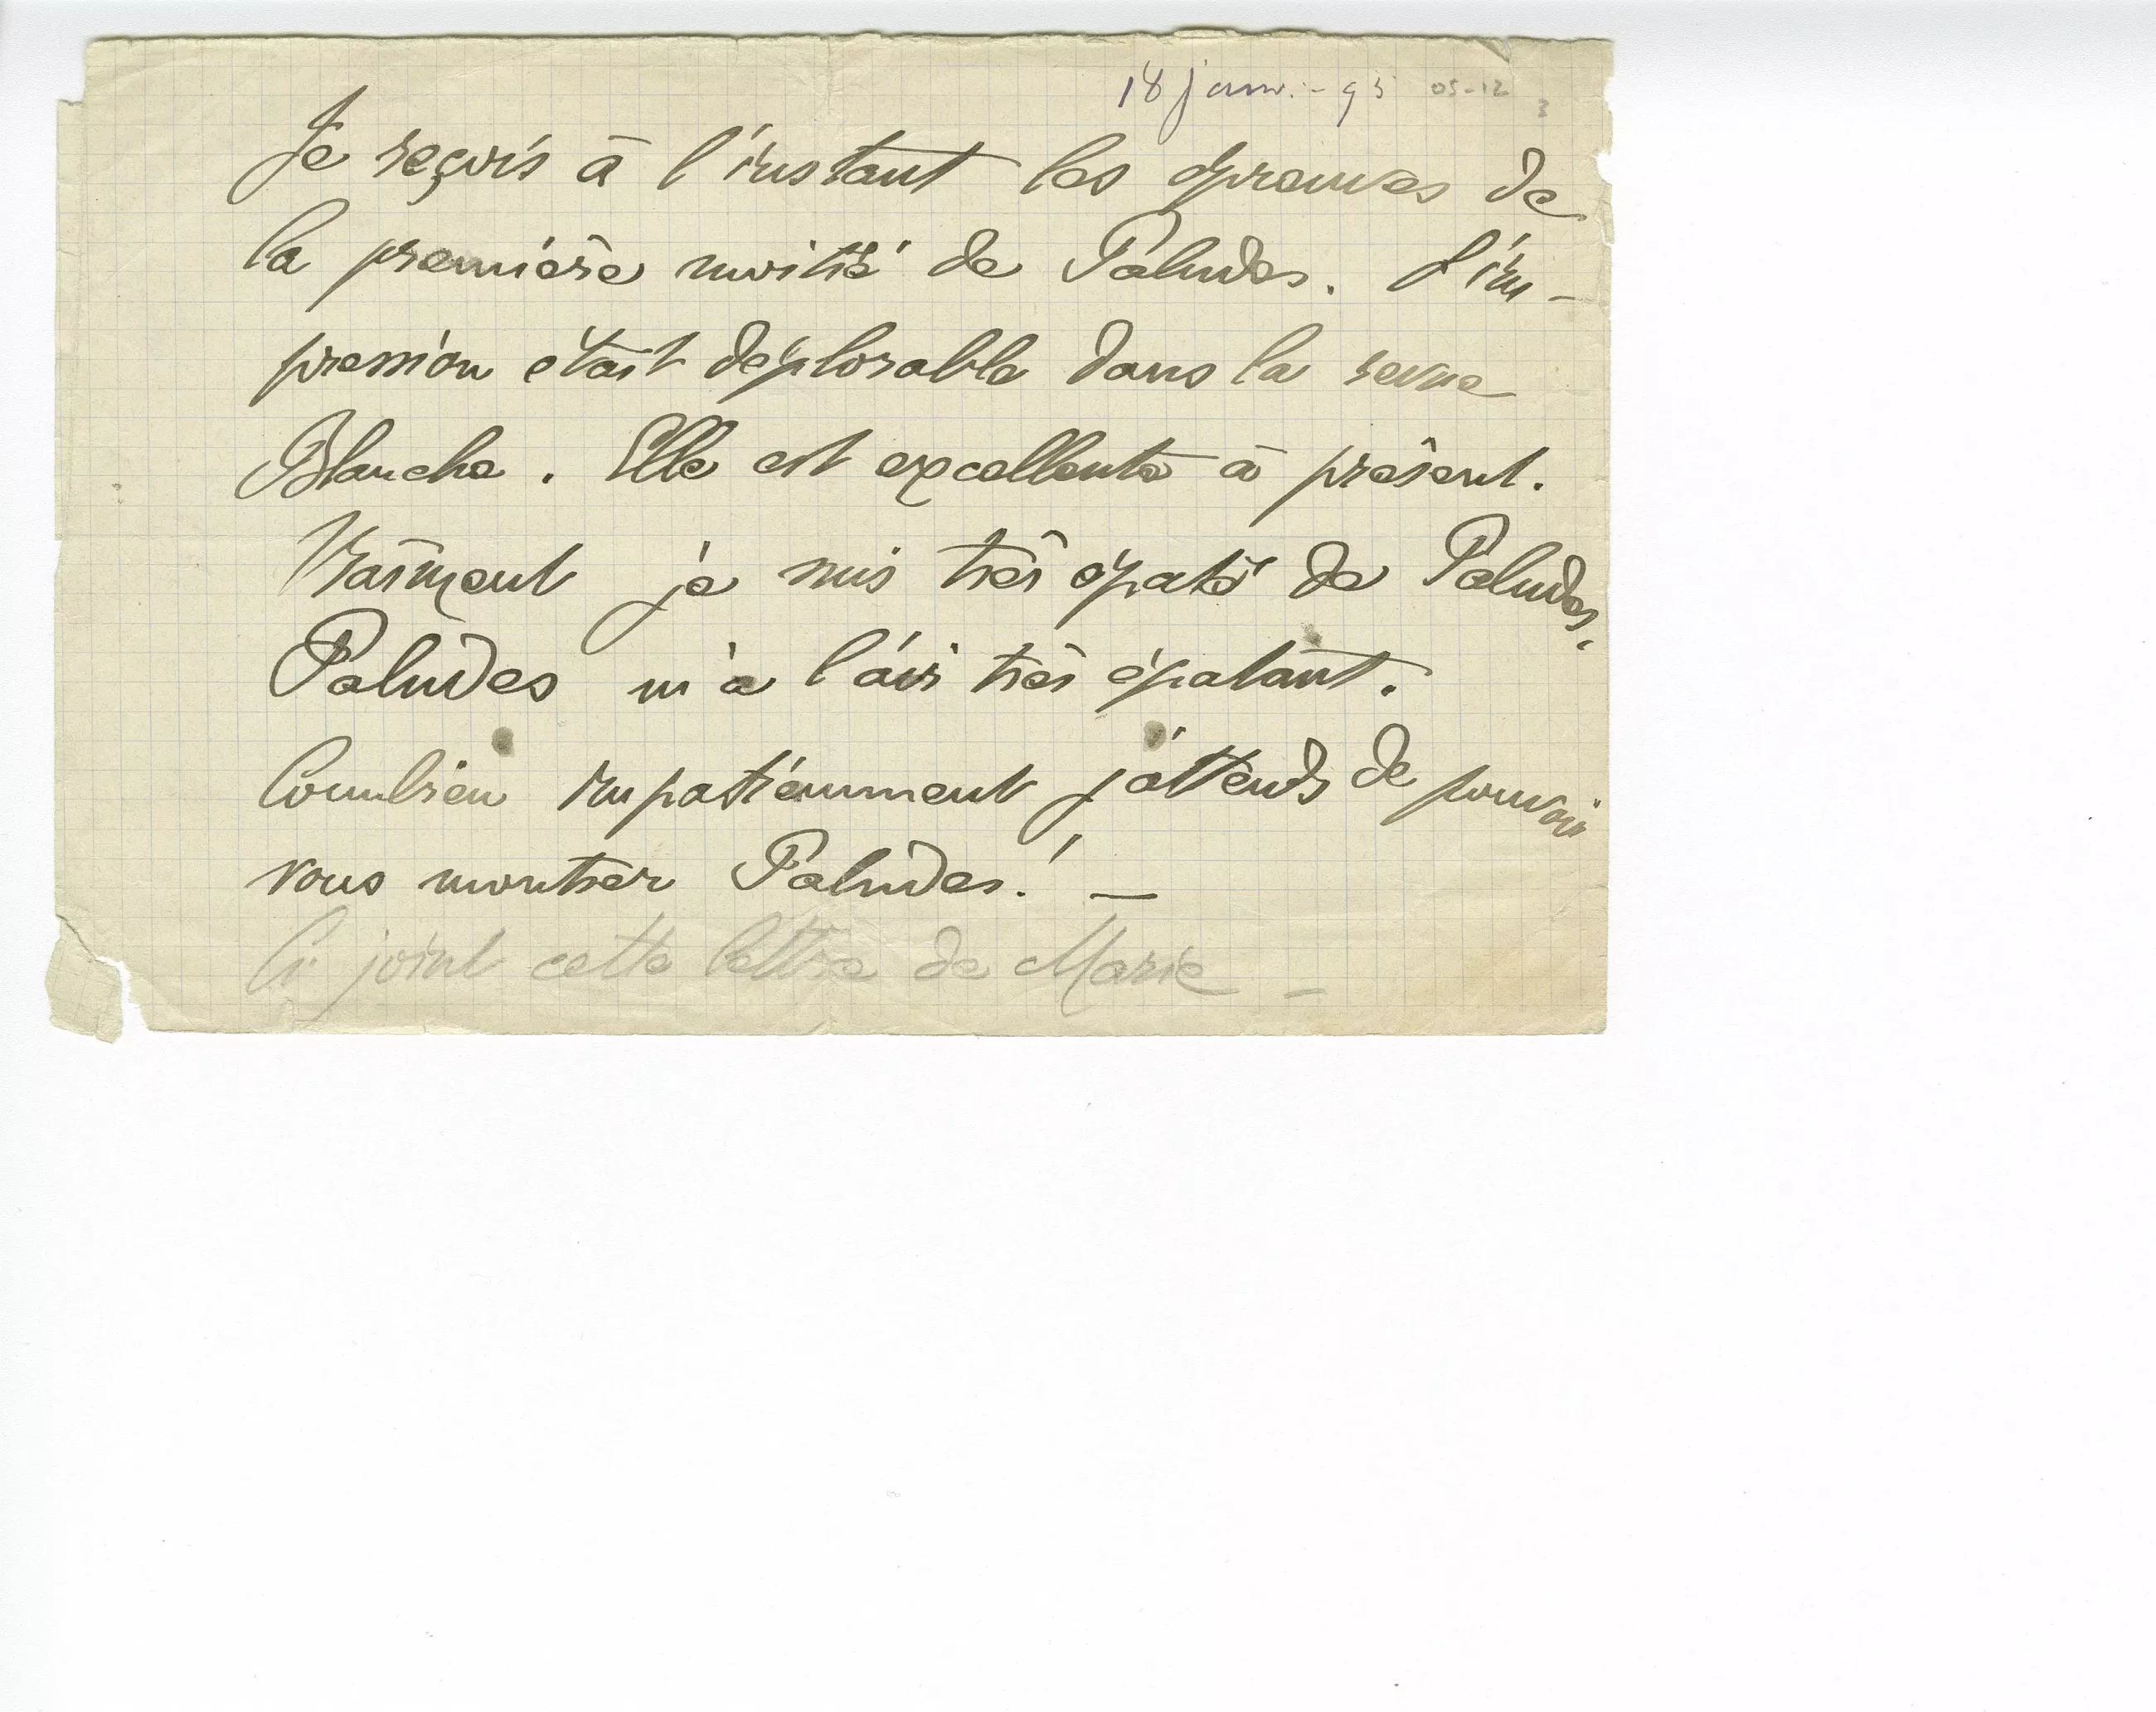 18 janv. - 95 05-12
3
Je reçois à l'instant les épreuves de
la première moitié de Paludes. L'im-
pression était déplorable dans la revue
Blanche. Elle est excellente à présent.
Vraiment je suis très épaté de Paludes.
Paludes m'a l'air très épatant.
Combien impatiemment j'attends de pouvoir
vous montrer Paludes! —
Ci joint cette lettre de Marie —